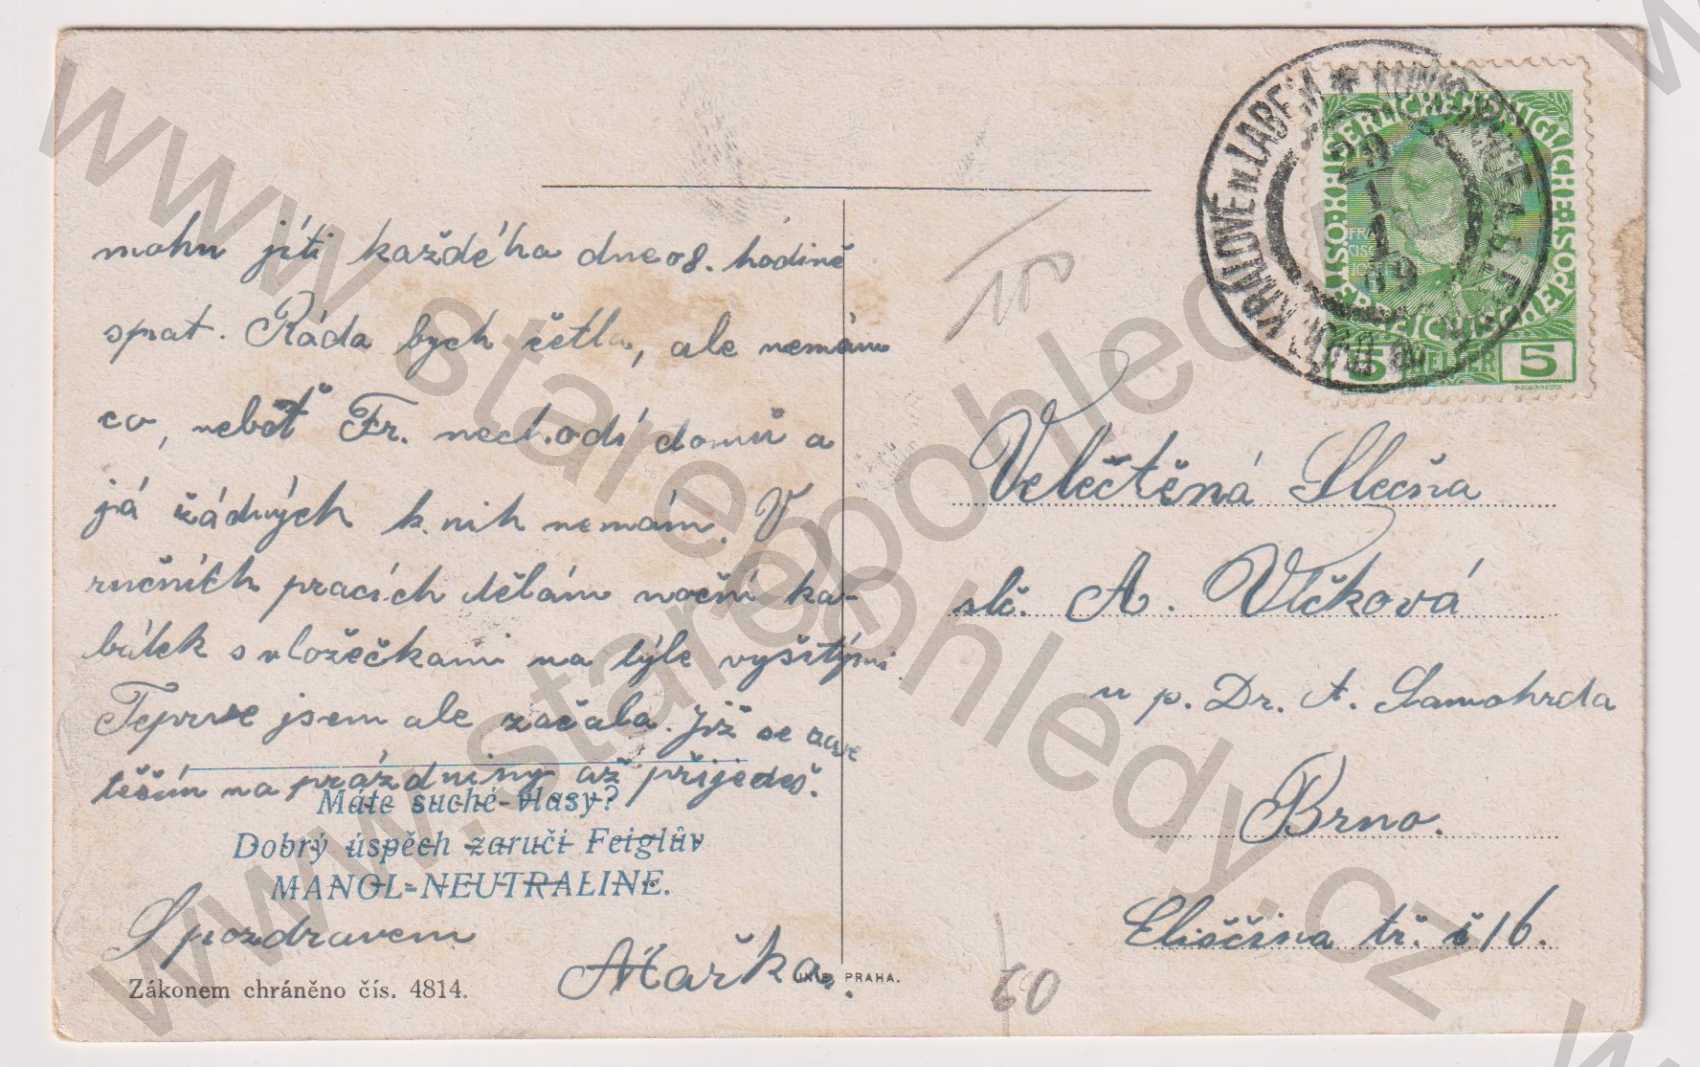 mohu jíti každého dne o 8. hodině
spat. Ráda bych četla, ale nemám
co, neboť Fr. nechodí domů a
já žádných knih nemám. V
ručních pracích dělám noční ka-
bátek s vložečkami na týle vyšitými
Teprve jsem ale začala. Již se
těším na prázdniny až přijedeš.
Máte suché vlasy?
Dobrý úspěch zaručí Feiglův
MANOL-NEUTRALINE.
S pozdravem
Mařka.
Zákonem chráněno čís. 4814.
PRAHA.
100
KRÁLOVÉ N. LABEM *
29
1
09
KAISERLICHE KÖNIGLICHE ÖSTERREICHISCHE POST
5 HELLER 5
Velectěná Slečna
slč. A. Vlčková
u p. Dr. A. Samohrda
Brno.
Eliščina tř. č 16.
60
www.starepohledy.cz
www.starepohledy.cz